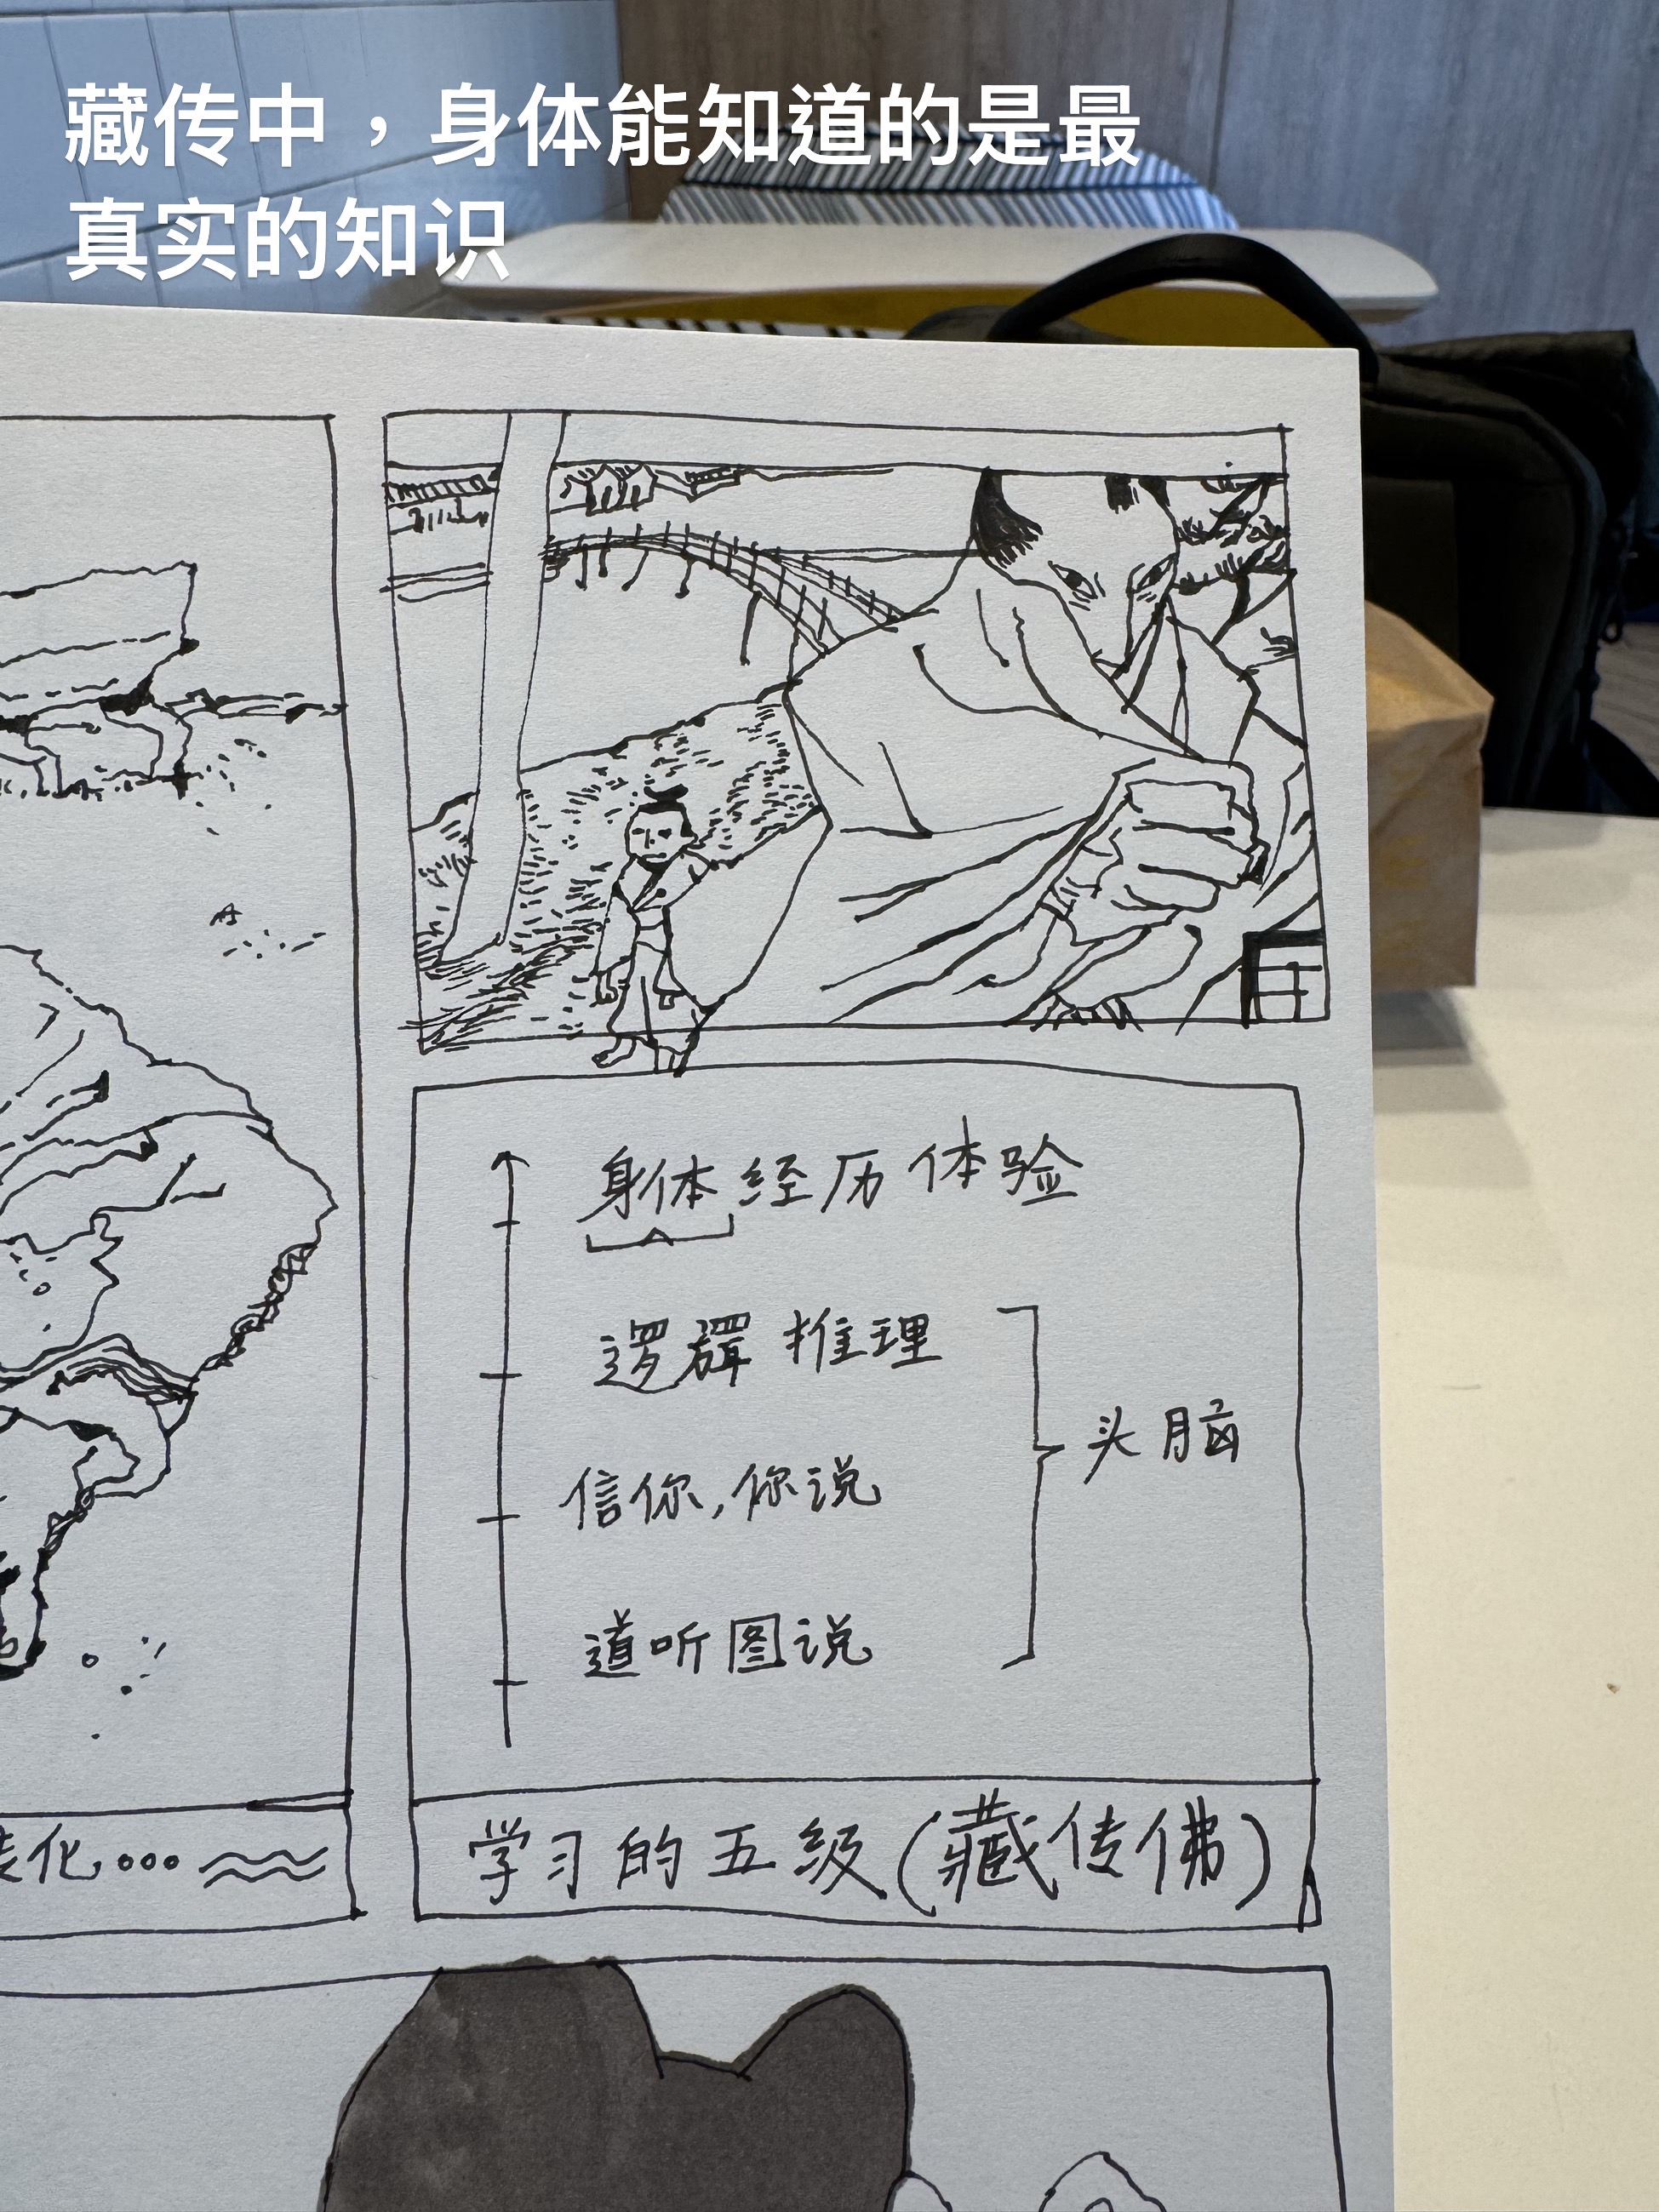 藏传中，身体能知道的是最
真实的知识
身体经历体验
逻辑推理
信你,你说
头脑
道听图说
化
学习的五级(藏传佛)